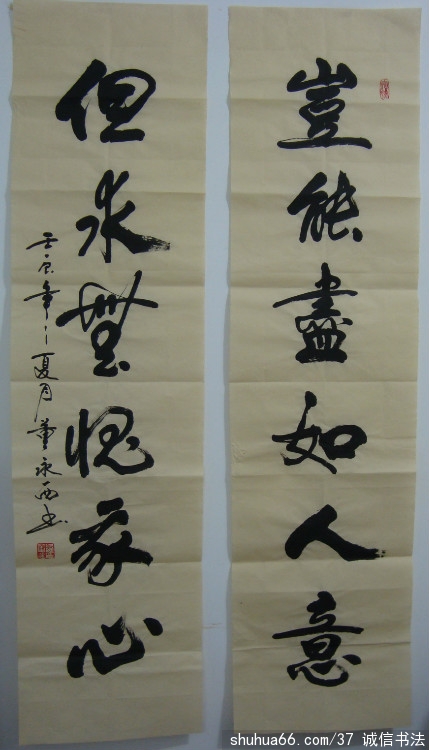 豈能盡如人意
但求無愧我心
夏月董永西书
shuhua66.com/37 诚信书法